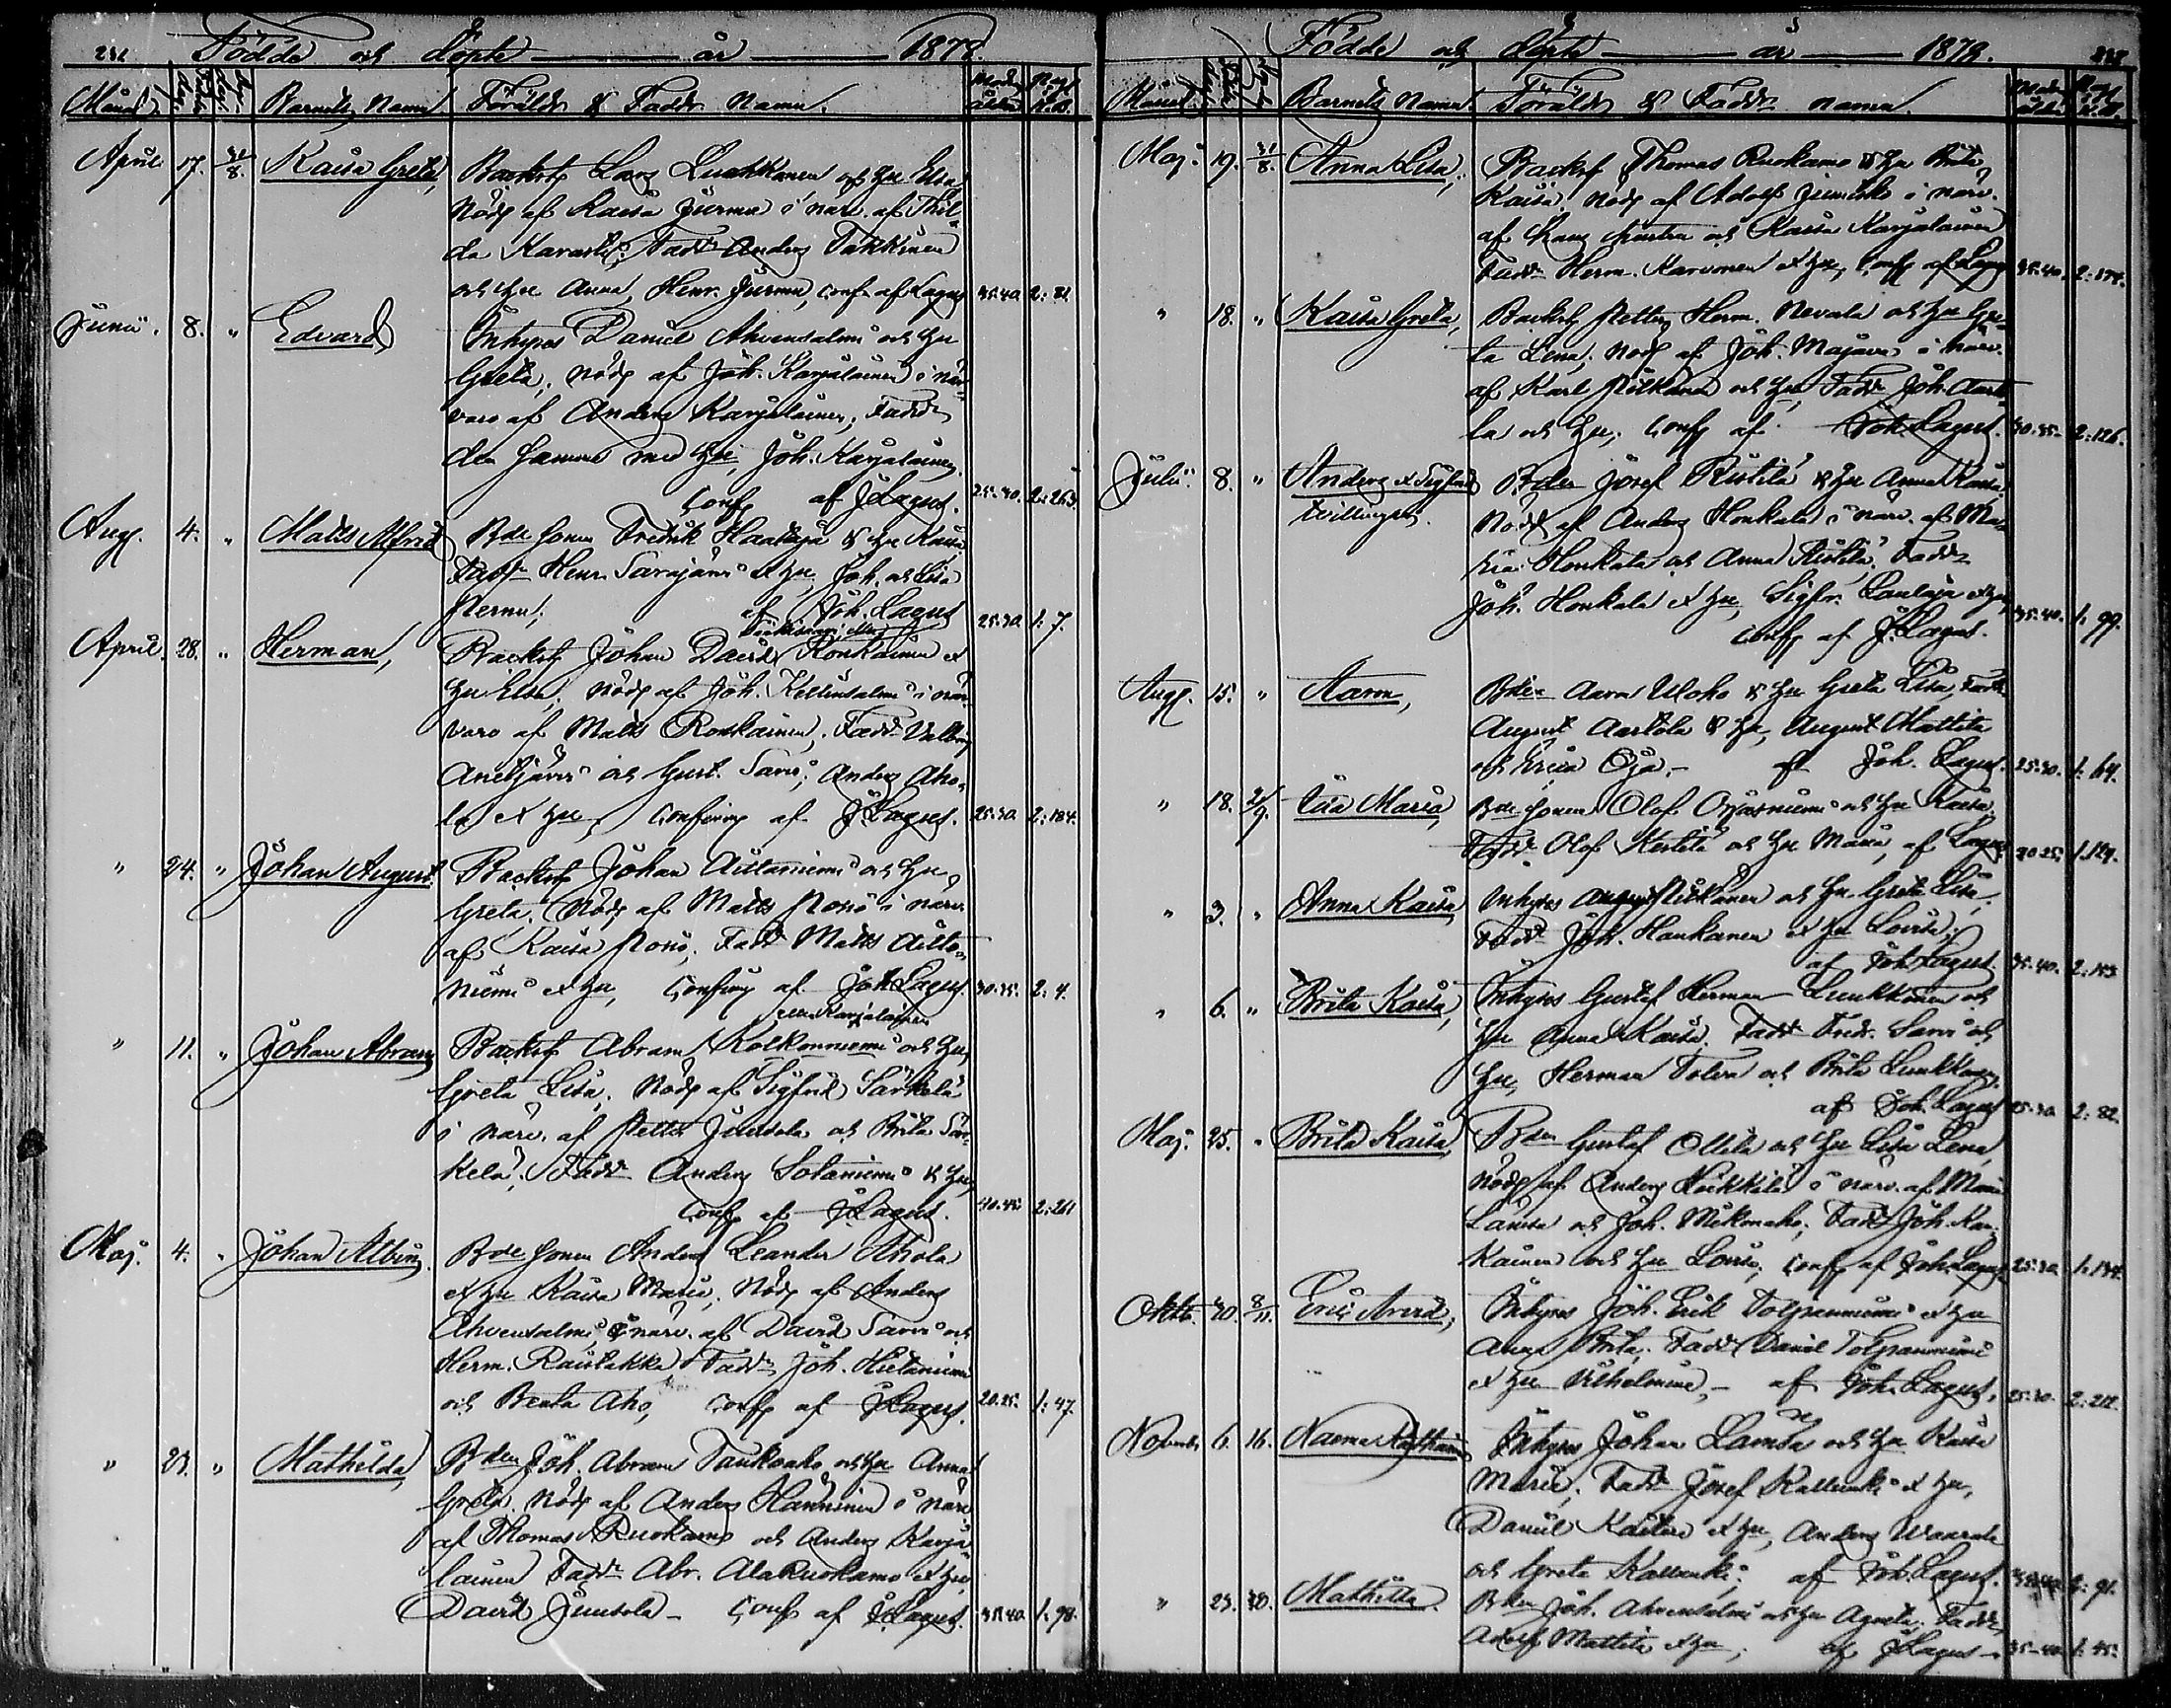 Födde och döpte år 1878.
Månad. Barnets Namn. Föräldr. & Fadd. Namn.
April 17. 31/8. Kaisa Greta, Backstg Lars Luukkanen och hu Elsa,
Nödd. af Kaisa Jurmu i närv. af Thil-
da Karvasti; Fadd. Anders Takkinen
och hu Anna, Henr. Jurmu, conf. af Lagus 35.40. 2:81
Junii. 8. " Edvard, Inhyses Daniel Ahvensalmi och hu
Greta; nödd. af Joh. Karjalainen i när-
varo af Anders Karjalainen; Fadd.
den samme med hu, Joh. Karjalainen,
Conf. af J. Lagus. 25.30. 2:263
Aug. 4. " Matts Alfred Bde sonen Fredrik Haataja & hu Kaisa
Fadd. Henr. Sarajärvi & hu, Joh. och Lisa
Pernu; af Joh. Lagus 25.30. 1:7.
April. 28. " Herman, Backstg Johan David Ronkainen &
hu Elsa; nödd. af Joh. Kellinsalmi i när-
varo af Matts Ronkainen; Fadd.
och Gust. Särvi; Anders Aho-
la & hu, Confirm. af J. Lagus. 25.30. 2:184.
" 24. " Johan August. Backstg Johan Aittaniemi och hu
Greta; Nödd. af Matts Posio i närv.
af Kaisa Posio; Fadd. Matts Aitta-
niemi & hu, Confirm. af Joh. Lagus. 30.35. 2:4.
eller Karjalainen
" 11. " Johan Abram Backstg Abram Kolkonniemi och hu
Greta Lisa; Nödd. af Sigfrid Särkelä
i närv. af Petter Juusola och Brita Sär-
kelä; Fadd. Anders Sotaniemi & hu,
Conf. af J. Lagus. 40.45. 2:261
Maj. 4. " Johan Albin. Bde sonen Anders Leander Ahola
& hu Kaisa Maria; Nödd. af Anders
Ahvensalmi, i närv. af David Särvi och
Herm. Rautakka Fadd. Joh. Hietaniemi
och Beata Aho, Conf. af J. Lagus. 20.25. 1:47.
" 23. " Mathilda, Bden Joh. Abram Taukoaho och hu Anna
Greta; Nödd. af Anders Hänninen i närv
af Thomas Ruokamo och Anders Karja-
lainen Fadd. Abr. Ala Ruokamo & hu
David Juusola – Conf. af J. Lagus. 35.40. 1:98.
Födde och döpte år 1878.
Månad. Barnets Namn. Föräldr. & Fadd. namn.
Maj. 19. 31/8. Anna Lisa; Backst Thomas Ruokamo & hu Brita
Kaisa; nödd. af Adolf i närv.
af och Kaisa Karjalainen
Fadd. Herm. Karvonen & hu, Conf. af Lagus 35.40. 2:174.
" 18. " Kaisa Greta, Backstg Petter Herm. Nevala och hu Gre-
ta Lena; nödd. af Joh. Majava i närv.
af Karl Pitkänen och hu, Fadd. Joh. Aarto-
la och hu; Conf. af Joh. Lagus. 30.35. 2:126.
Julii. 8. " Anders & Sigfrid Bden Josef Ristilä & hu Anna Kaisa;
tvillingar. Nödd. af Anders Honkala i närv. af Ma-
ria Honkala och Anna Ristilä; Fadd.
Joh. Honkala & hu, Sigfr. Lantaja & hu,
Conf. af J. Lagus. 35.40. 1:99.
Aug. 15. " Aaron, Bden Aaron Uloho & hu Greta Lisa, Fadd.
August Aartola & hu, August Mattila
och Erica Oja, – af Joh. Lagus. 25.30. 1:64.
" 18. 2/9. Ida Maria, Bde sonen Olof Orjasniemi och hu Kaisa
Fadd. Olof Kestilä och hu Maria, af Lagus 20.25. 1:124.
" 3. " Anna Kaisa Inhyses August Pitkänen och hu Greta Lisa,
Fadd. Joh. Haukanen & hu Lovisa;
af Joh. Lagus. 35.40. 2:153
" 6. " Brita Kaisa, Inhyses Gustaf Herman Luukkonen och
hu Anna Kaisa. Fadd. Fredr. Särvi och
hu, Herman Tolva och Brita Luukkonen,
af Joh. Lagus 25.30. 2:82.
Maj. 25. " Brita Kaisa, Bden Gustaf Ollila och hu Lisa Lena,
nödd. af Anders Heikkilä i närv. af Maria
Lämsä och Joh. Mikonaho; Fadd. Joh. Kar-
kainen och hu Lovisa; Conf. af Joh. Lagus 25.30. 1:134.
Oktob. 20. 8/11. Eric Arvid, Inhyses Joh. Erik Tolpanniemi & hu
Anna Brita; Fadd. Daniel Tolpanniemi
& hu Vilhelmina, – af Joh. Lagus, 25.30. 2:212.
Novemb. 6. 16. Naema Katharina Inhyses Johan Lämsä och hu Kaisa
Maria; Fadd. Josef Kallunki & hu,
Daniel Kaitera & hu, Anders Waarala
och Greta Kallunki; af Joh. Lagus. 35.40. 2:91.
" 23. 30. Mathilda. Bden Joh. Ahvensalmi och hu Agneta; Fadd.
Adolf Mattila & hu; af J. Lagus – 35–40. 1:45.